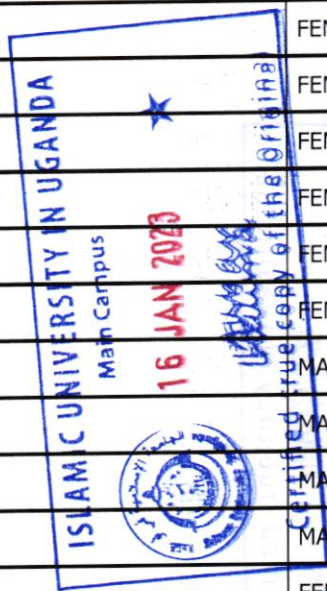 ISLAMIC UNIVERSITY IN UGANDA
Main Campus
16 JAN 2023
Certified true copy of the Original
FEM
FEM
FEM
FEM
FEM
FEM
MA
MA
MA
MA
FEM